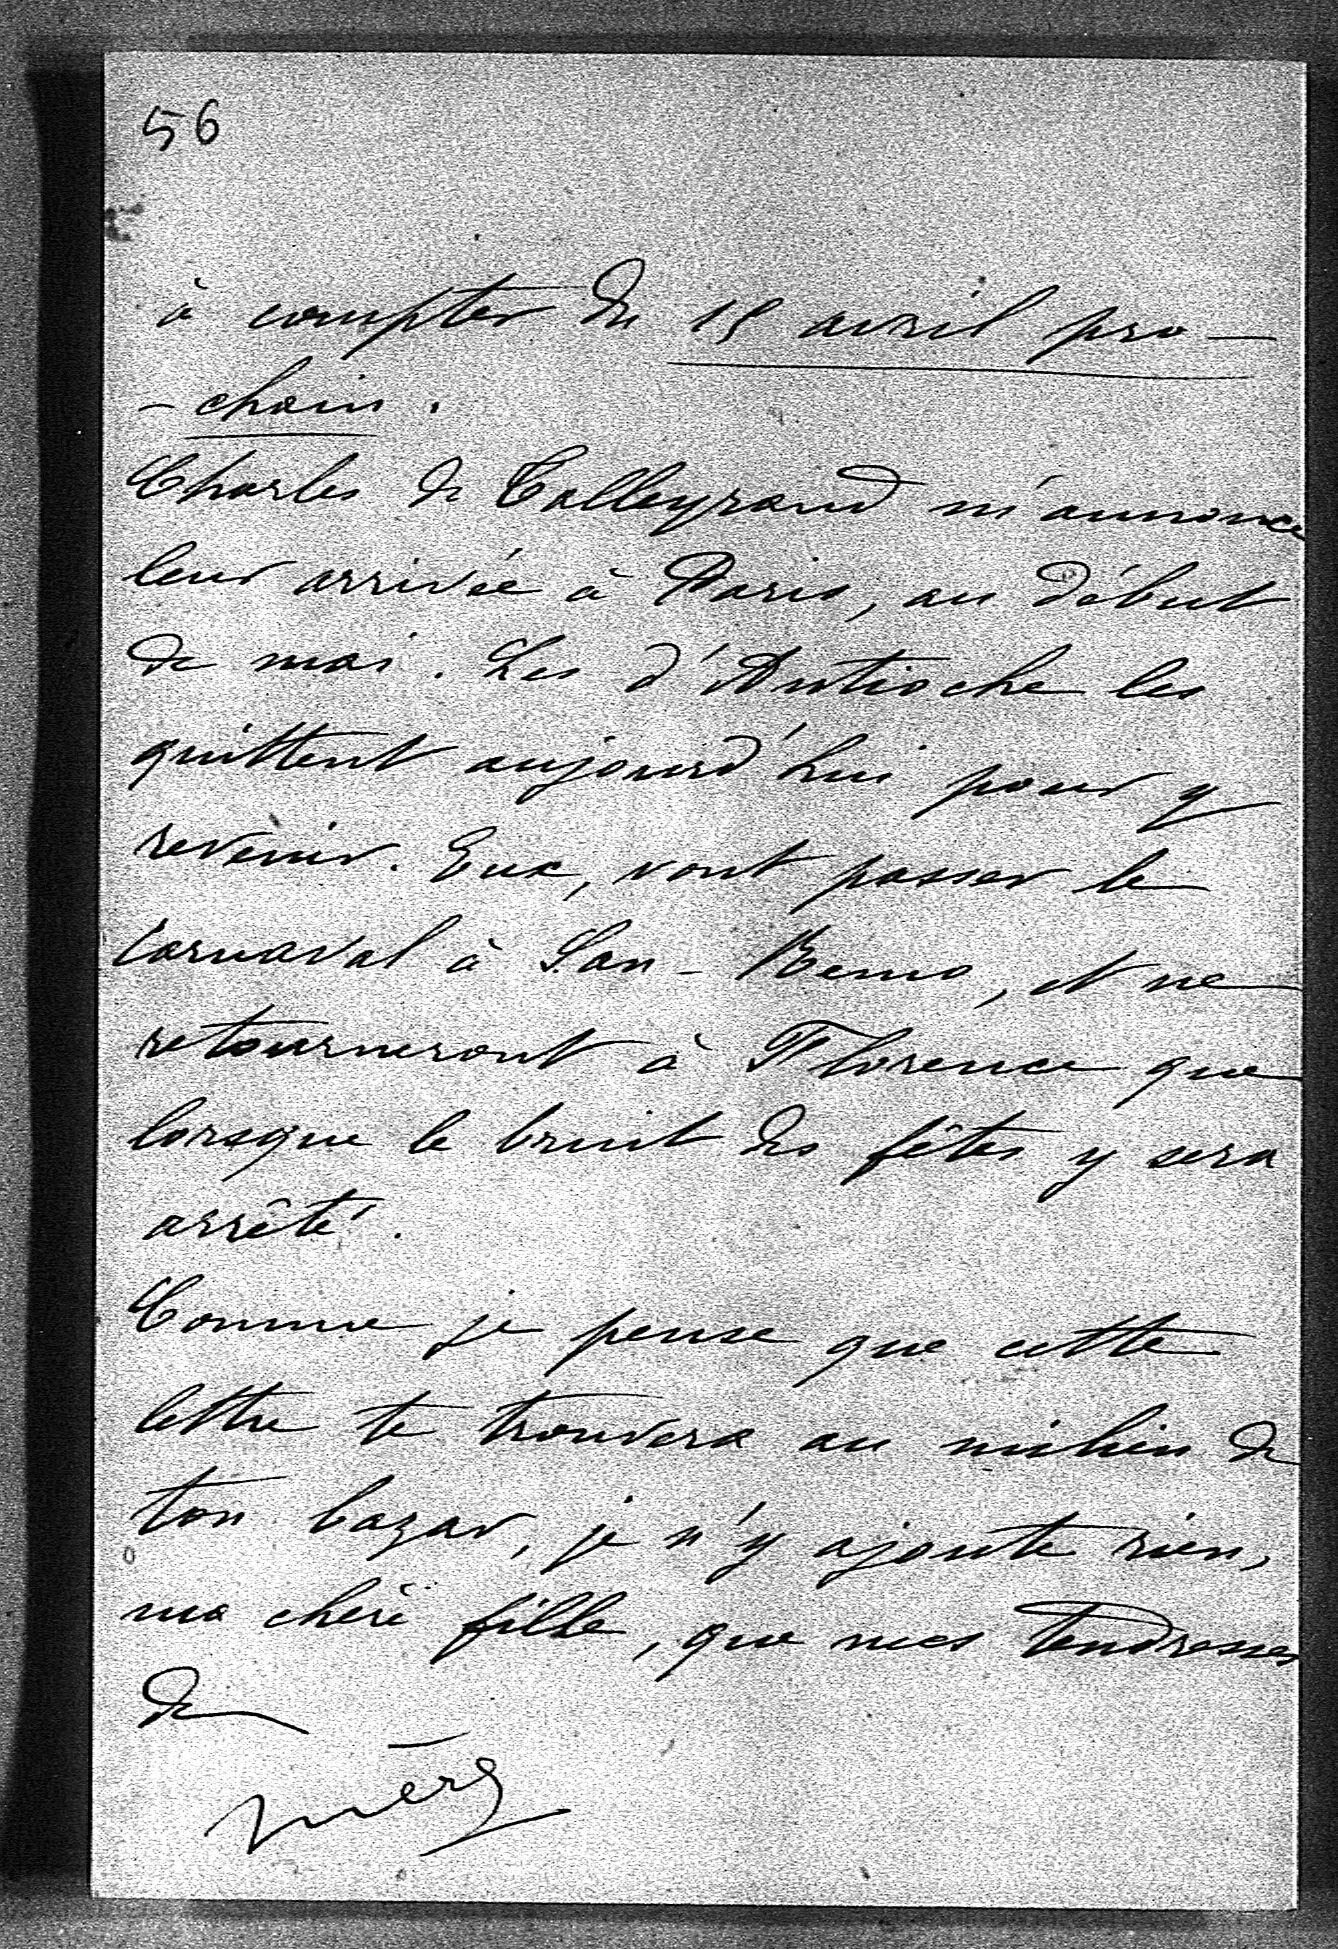 56
à compter du 15 avril pro-
-chain.
Charles de Talleyrand m'annonce
leur arrivée à Paris, au début
de mai. Les d'Antioche les
quittent aujourd'hui pour y
revenir. Eux, vont passer le
carnaval à San-Remo, et ne
retourneront à Florence que
lorsque le bruit des fêtes y sera
arrêté.
Comme je pense que cette
lettre te trouvera au milieu de
ton bazar, je n'y ajoute rien,
ma chère fille, que mes tendresses
de
mère